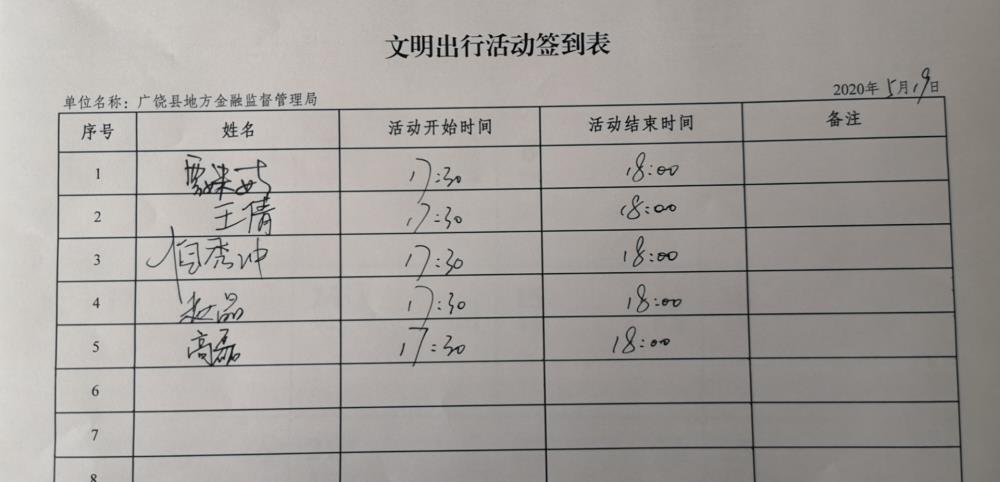 文明出行活动签到表
单位名称：广饶县地方金融监督管理局
2020年5月19日
序号 姓名 活动开始时间 活动结束时间 备注
1 17:30 18:00
2 王倩 17:30 18:00
3 17:30 18:00
4 17:30 18:00
5 高磊 17:30 18:00
6
7
8